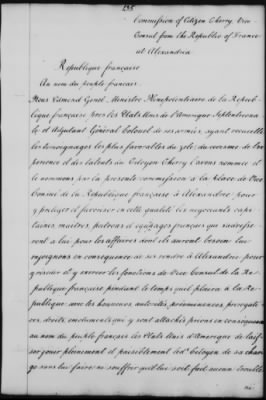 235
Commission of Citizen Cherry, Vice
Consul from the Republic of France
at Alexandria
République française
Au nom du peuple français
Nous Edmond Genet, Ministre Plénipotentiaire de la Répub-
lique française près les Etats Unis de l'Amérique Septentriona-
le et Adjutant Général Colonel de ses armées, ayant recueilli
les témoignages les plus favorables du zèle du civisme de l'ex-
perience et des talents du Citoyen Cherry l'avons nommé et
le nommons par la presente commission à la Place de Vice
Consul de la République française à Alexandrie pour
y protéger et favoriser en cette qualité les négociants cap-
itaines, maitres, patrons et équipages français qui s'adresse-
ront a lui pour les affaires dont ils auront besoin lui
enjoignons en consequence de se rendre à Alexandrie pour
y resider et y exercer les fonctions de Vice Consul de la Re-
publique française pendant le temps qu'il plaira à la Re-
publique avec les honneurs autorités, prééminences, prerogati-
ves, droits, emoluments qui y sont attachés prions en consequence
au nom du peuple français les Etats Unis d'Amerique de lais-
ser jouir pleinement et paisiblement led. Citoyen de sa char-
ge sans lui faire ni souffrir qu'il lui soit fait aucun trouble